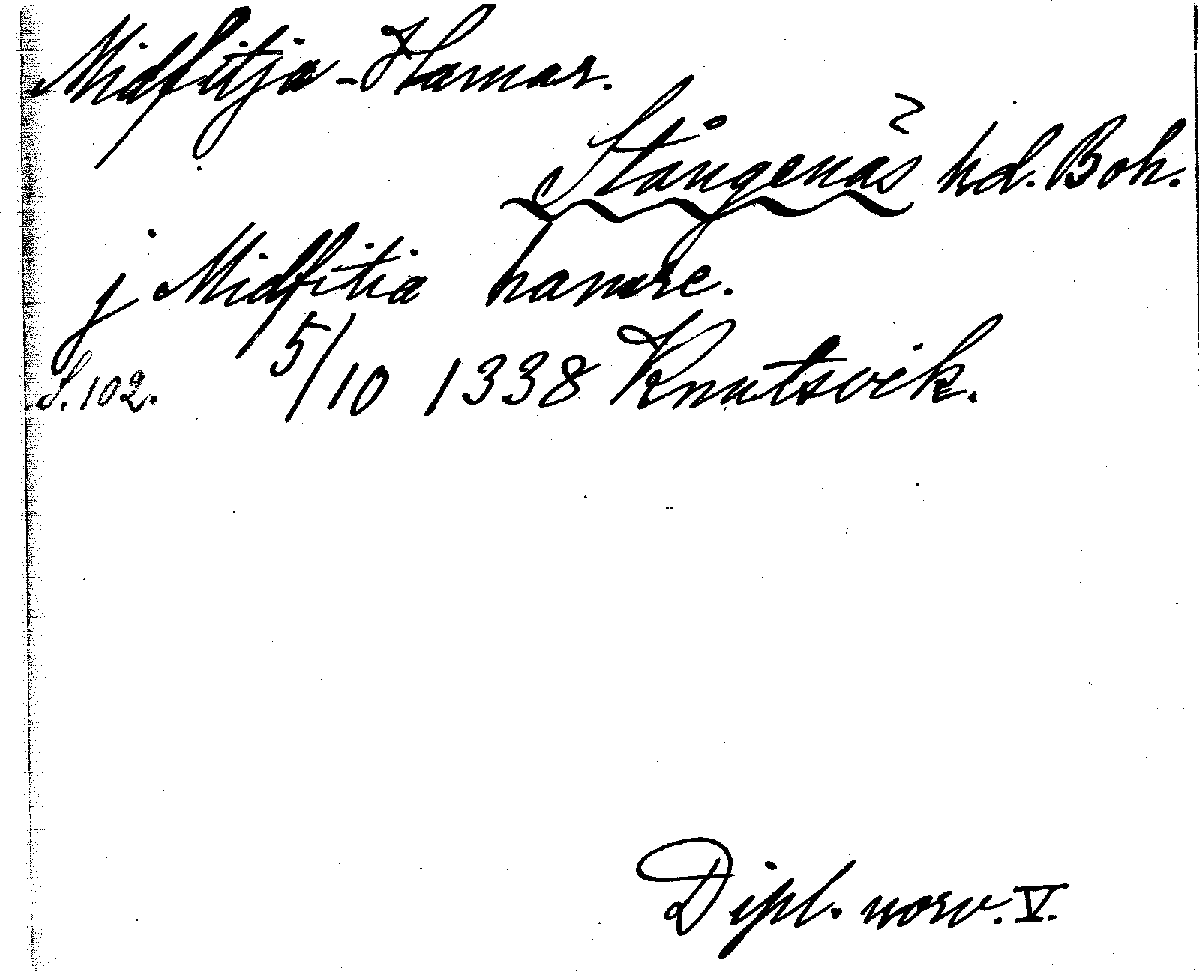 Midfitja-Hamar.
Stångenäs hd. Boh.
j Midfitia hamre.
S. 102. 5/10 1338 Knutsvik.
Dipl. norv. V.